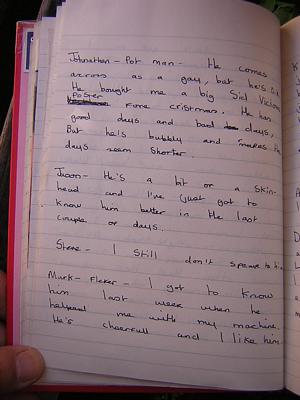 Johnathan - Pot man - He comes
across as a gay, but he's
He bought me a big Sid Vicious
Poster
For cristmas. He has
good days and bad days,
But he's bubbly and makes the
days seem shorter.
Jason - He's a bit of a Skin-
head and I've (just got to
know him better in the last
couple of days.
Steve - I still don't speak to him
Mark - Fleker - I got to know
him last week when he
helped me with my machine.
He's cheerfull and I like him